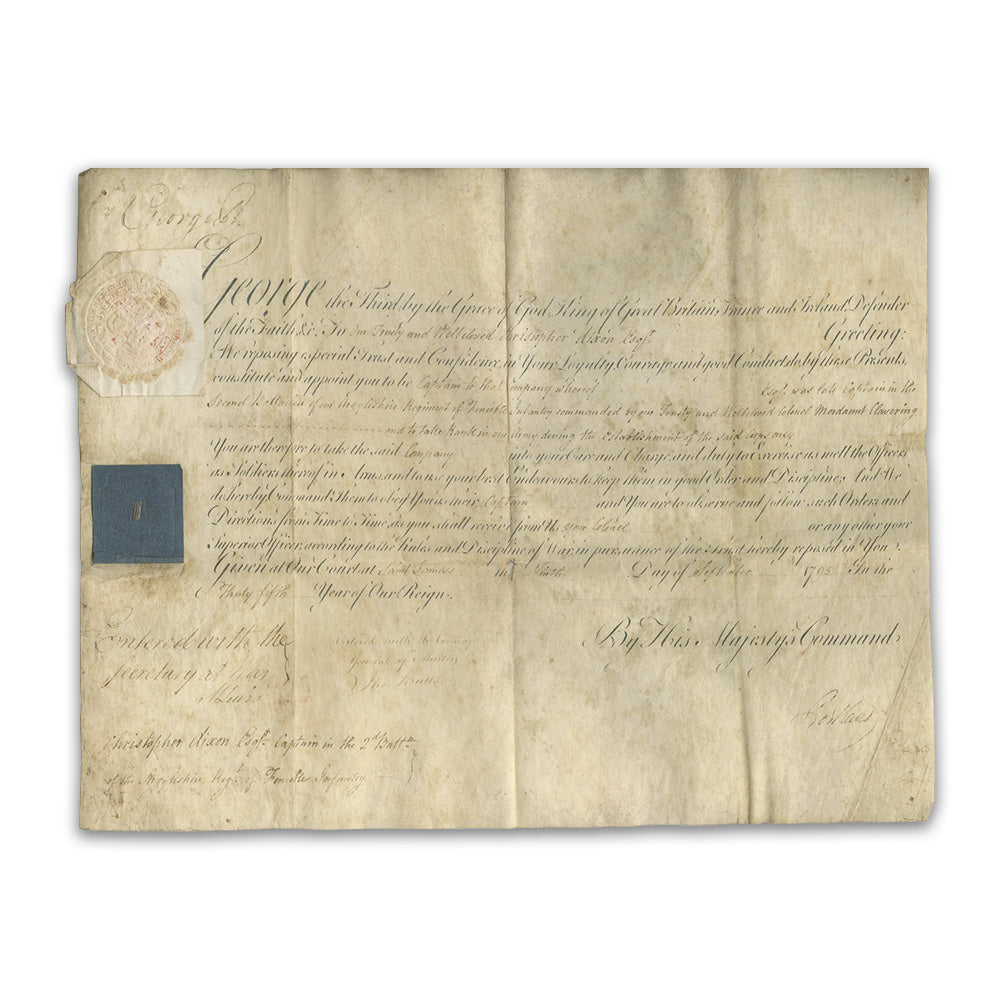 George R.
George the Third, by the Grace of God, King of Great Britain, France and Ireland, Defender
of the Faith, &c. To Our Trusty and Wellbeloved Christopher Dixon Esqr. Greeting:
We reposing especial Trust and Confidence in Your Loyalty, Courage and good Conduct, do, by these Presents,
constitute and appoint you to be Captain to that Company whereof Esqr. was late Captain in the
Second Battalion of our Argyllshire Regiment of Fencible Infantry commanded by our Trusty and Wellbeloved Colonel Mordaunt Clavering
and to take Rank in our Army during the Establishment of the said corps only
You are therefore to take the said Company into your Care and Charge, and duly to Exercise as well the Officers
as Soldiers thereof in Arms, and to use your best Endeavours to keep them in good Order and Discipline; And We
do hereby Command Them to obey You as their Captain and You are to observe and follow such Orders and
Directions from Time to Time as you shall receive from Us, your Colonel or any other your
Superior Officer, according to the Rules and Discipline of War, in pursuance of the Trust hereby reposed in You.
Given at Our Court at Saint James's the Ninth Day of September 1795 In the
Thirty fifth Year of Our Reign.
By His Majesty's Command,
Entered with the
Secretary at War
MLewis
Entered with the
General of Musters
Portland
Christopher Dixon Esqr. Captain in the 2d Battn.
of the Argyllshire Regt. of Fencible Infantry